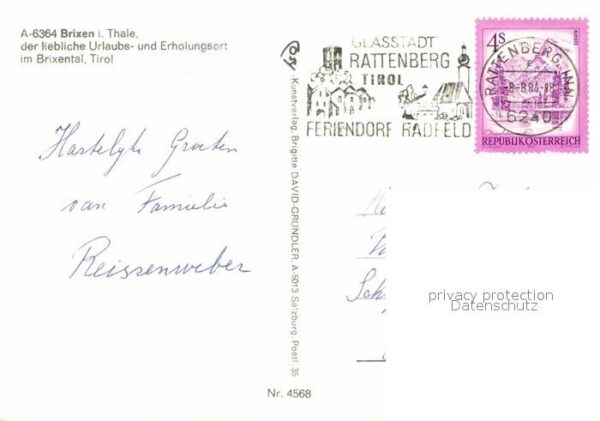 A-6364 Brixen i. Thale,
der liebliche Urlaubs- und Erholungsort
im Brixental, Tirol
Hartelyk Groeten
van Familie
Reissenweber
Kunstverlag Brigitte DAVID-GRÜNDLER, A-5013 Salzburg, Postf. 35
Nr. 4568
GLASSTADT
RATTENBERG
TIROL
FERIENDORF RADFELD
4S
REPUBLIK ÖSTERREICH
RATTENBERG, INN
6240
privacy protection
Datenschutz